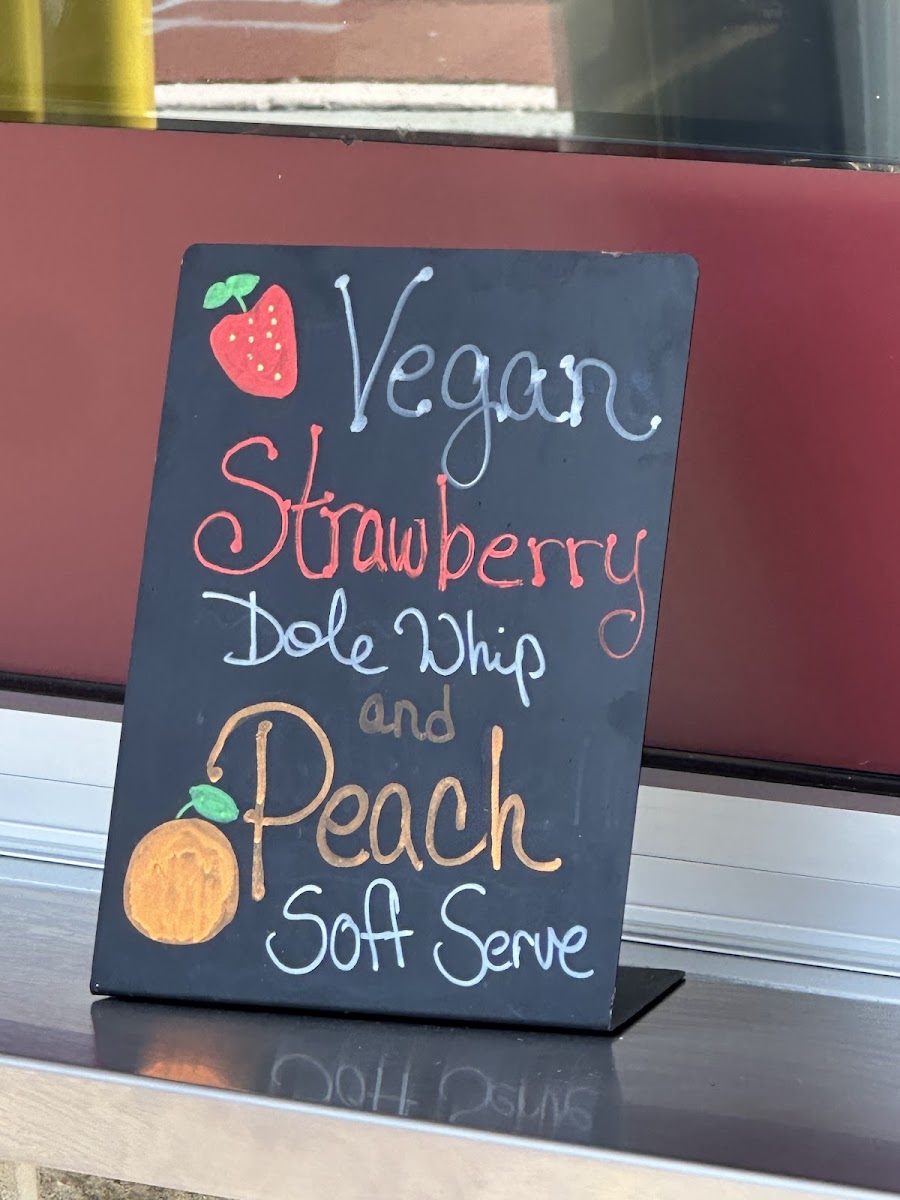 Vegan
Strawberry
Dole Whip
and
Peach
Soft Serve